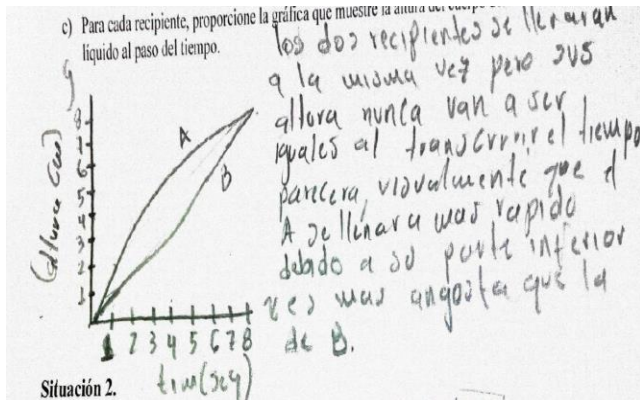 c) Para cada recipiente, proporcione la gráfica que muestre la altura del
líquido al paso del tiempo.
los dos recipientes se llenaran
a la misma vez pero sus
altura nunca van a ser
iguales al transcurrir el tiempo
parecera, visualmente que el
A se llenara mas rapido
debido a su parte inferior
mas angosta que la
de B.
y
8
7
6
5
4
3
2
1
altura (cm)
A
B
1 2 3 4 5 6 7 8
tim(seg)
Situación 2.